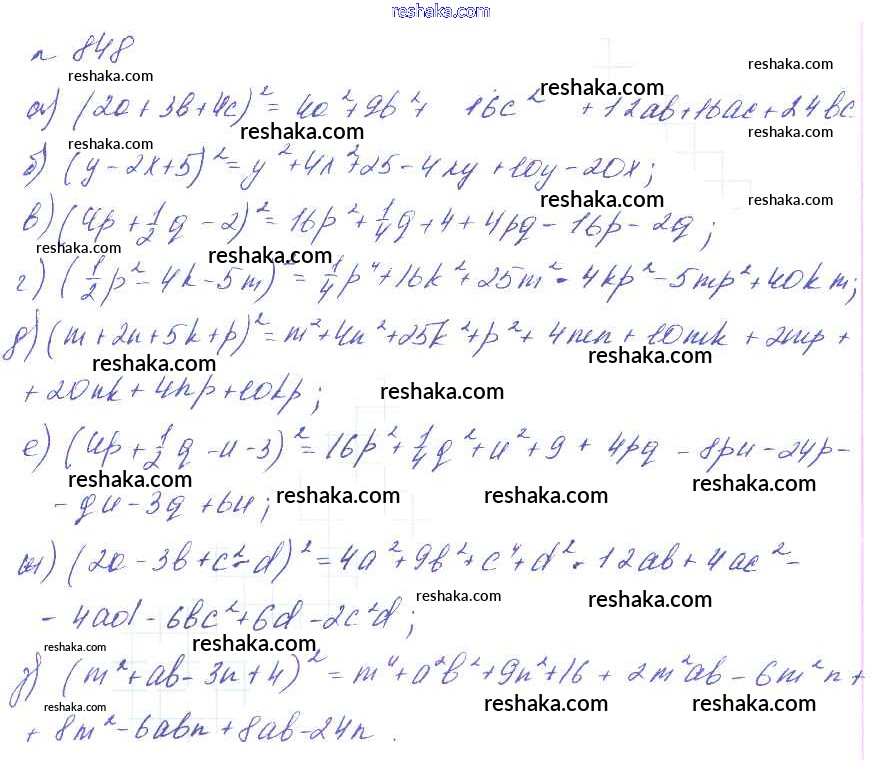 reshaka.com
n 848
reshaka.com reshaka.com reshaka.com
а) (2a + 3b + 4c)² = 4a² + 9b² + 16c² + 12ab + 16ac + 24bc
reshaka.com reshaka.com
б) (y - 2x + 5)² = y² + 4x² + 25 - 4xy + 10y - 20x;
reshaka.com reshaka.com
в) (4p + 1/2 q - 2)² = 16p² + 1/4 q + 4 + 4pq - 16p - 2q;
reshaka.com reshaka.com reshaka.com
г) (1/2 p² - 4k - 5m)² = 1/4 p⁴ + 16k² + 25m² - 4kp² - 5mp² + 40km;
д) (m + 2n + 5k + p)² = m² + 4n² + 25k² + p² + 4mn + 10mk + 2mp +
reshaka.com reshaka.com
+ 20nk + 4np + 10kp;
reshaka.com
е) (4p + 1/2 q - u - 3)² = 16p² + 1/4 q² + u² + 9 + 4pq - 8pu - 24p -
reshaka.com reshaka.com reshaka.com reshaka.com
- qu - 3q + 6u;
ж) (2a - 3b + c² - d)² = 4a² + 9b² + c⁴ + d² - 12ab + 4ac² -
reshaka.com reshaka.com
- 4ad - 6bc² + 6d - 2c²d;
reshaka.com reshaka.com
з) (m² + ab - 3n + 4)² = m⁴ + a²b² + 9n² + 16 + 2m²ab - 6m²n +
reshaka.com reshaka.com reshaka.com
+ 8m² - 6abn + 8ab - 24n.